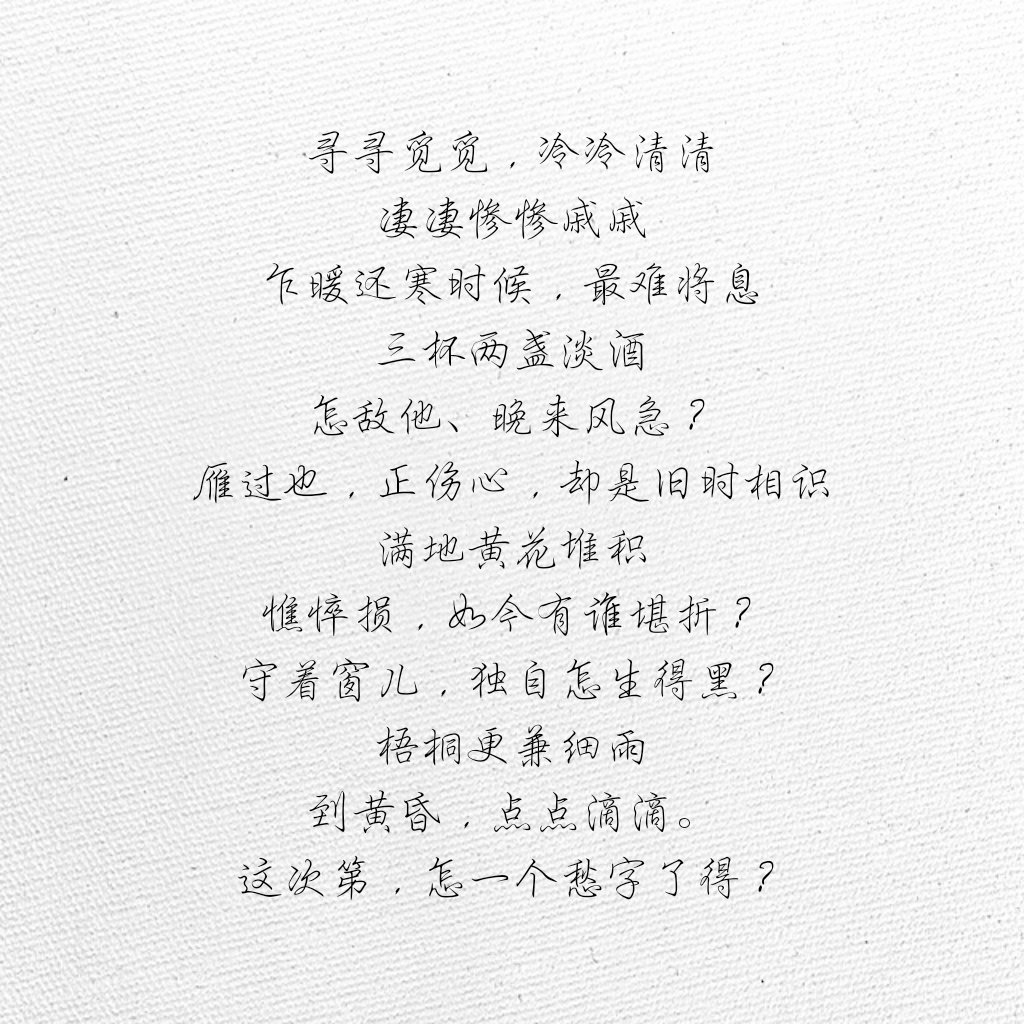 寻寻觅觅，冷冷清清
凄凄惨惨戚戚
乍暖还寒时候，最难将息
三杯两盏淡酒
怎敌他、晚来风急？
雁过也，正伤心，却是旧时相识
满地黄花堆积
憔悴损，如今有谁堪折？
守着窗儿，独自怎生得黑？
梧桐更兼细雨
到黄昏，点点滴滴。
这次第，怎一个愁字了得？